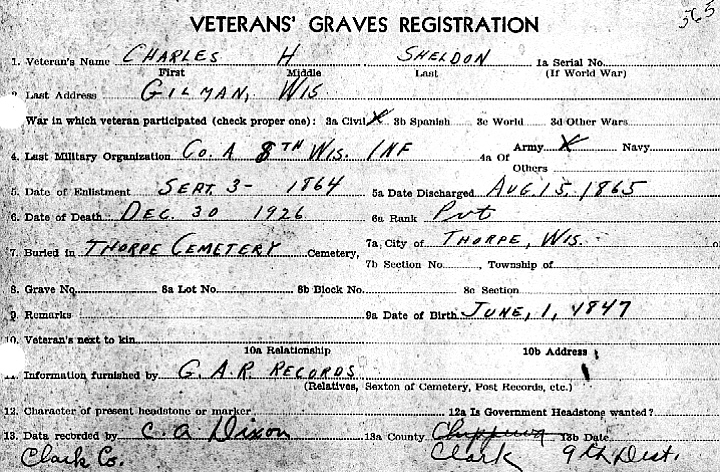 VETERANS' GRAVES REGISTRATION
1. Veteran's Name CHARLES H SHELDON 1a Serial No.
First Middle Last (If World War)
2. Last Address GILMAN, WIS.
War in which veteran participated (check proper one): 3a Civil X 3b Spanish 3c World 3d Other Wars
4. Last Military Organization Co. A 8TH WIS. INF 4a Of Army X Navy
Others
5. Date of Enlistment SEPT. 3- 1864 5a Date Discharged AUG. 15, 1865
6. Date of Death DEC. 30 1926 6a Rank Pvt
7. Buried in THORPE CEMETERY Cemetery, 7a, City of THORPE, WIS.
7b Section No. , Township of
8. Grave No. 8a Lot No. 8b Block No. 8c Section
9. Remarks 9a Date of Birth JUNE, 1, 1847
10. Veteran's next to kin
10a Relationship 10b Address
11. Information furnished by G.A.R. RECORDS
(Relatives, Sexton of Cemetery, Post Records, etc.)
12. Character of present headstone or marker 12a Is Government Headstone wanted?
13. Data recorded by C. A Dixon 13a County Chippewa 13b Date
Clark Co. Clark 9th Dist.